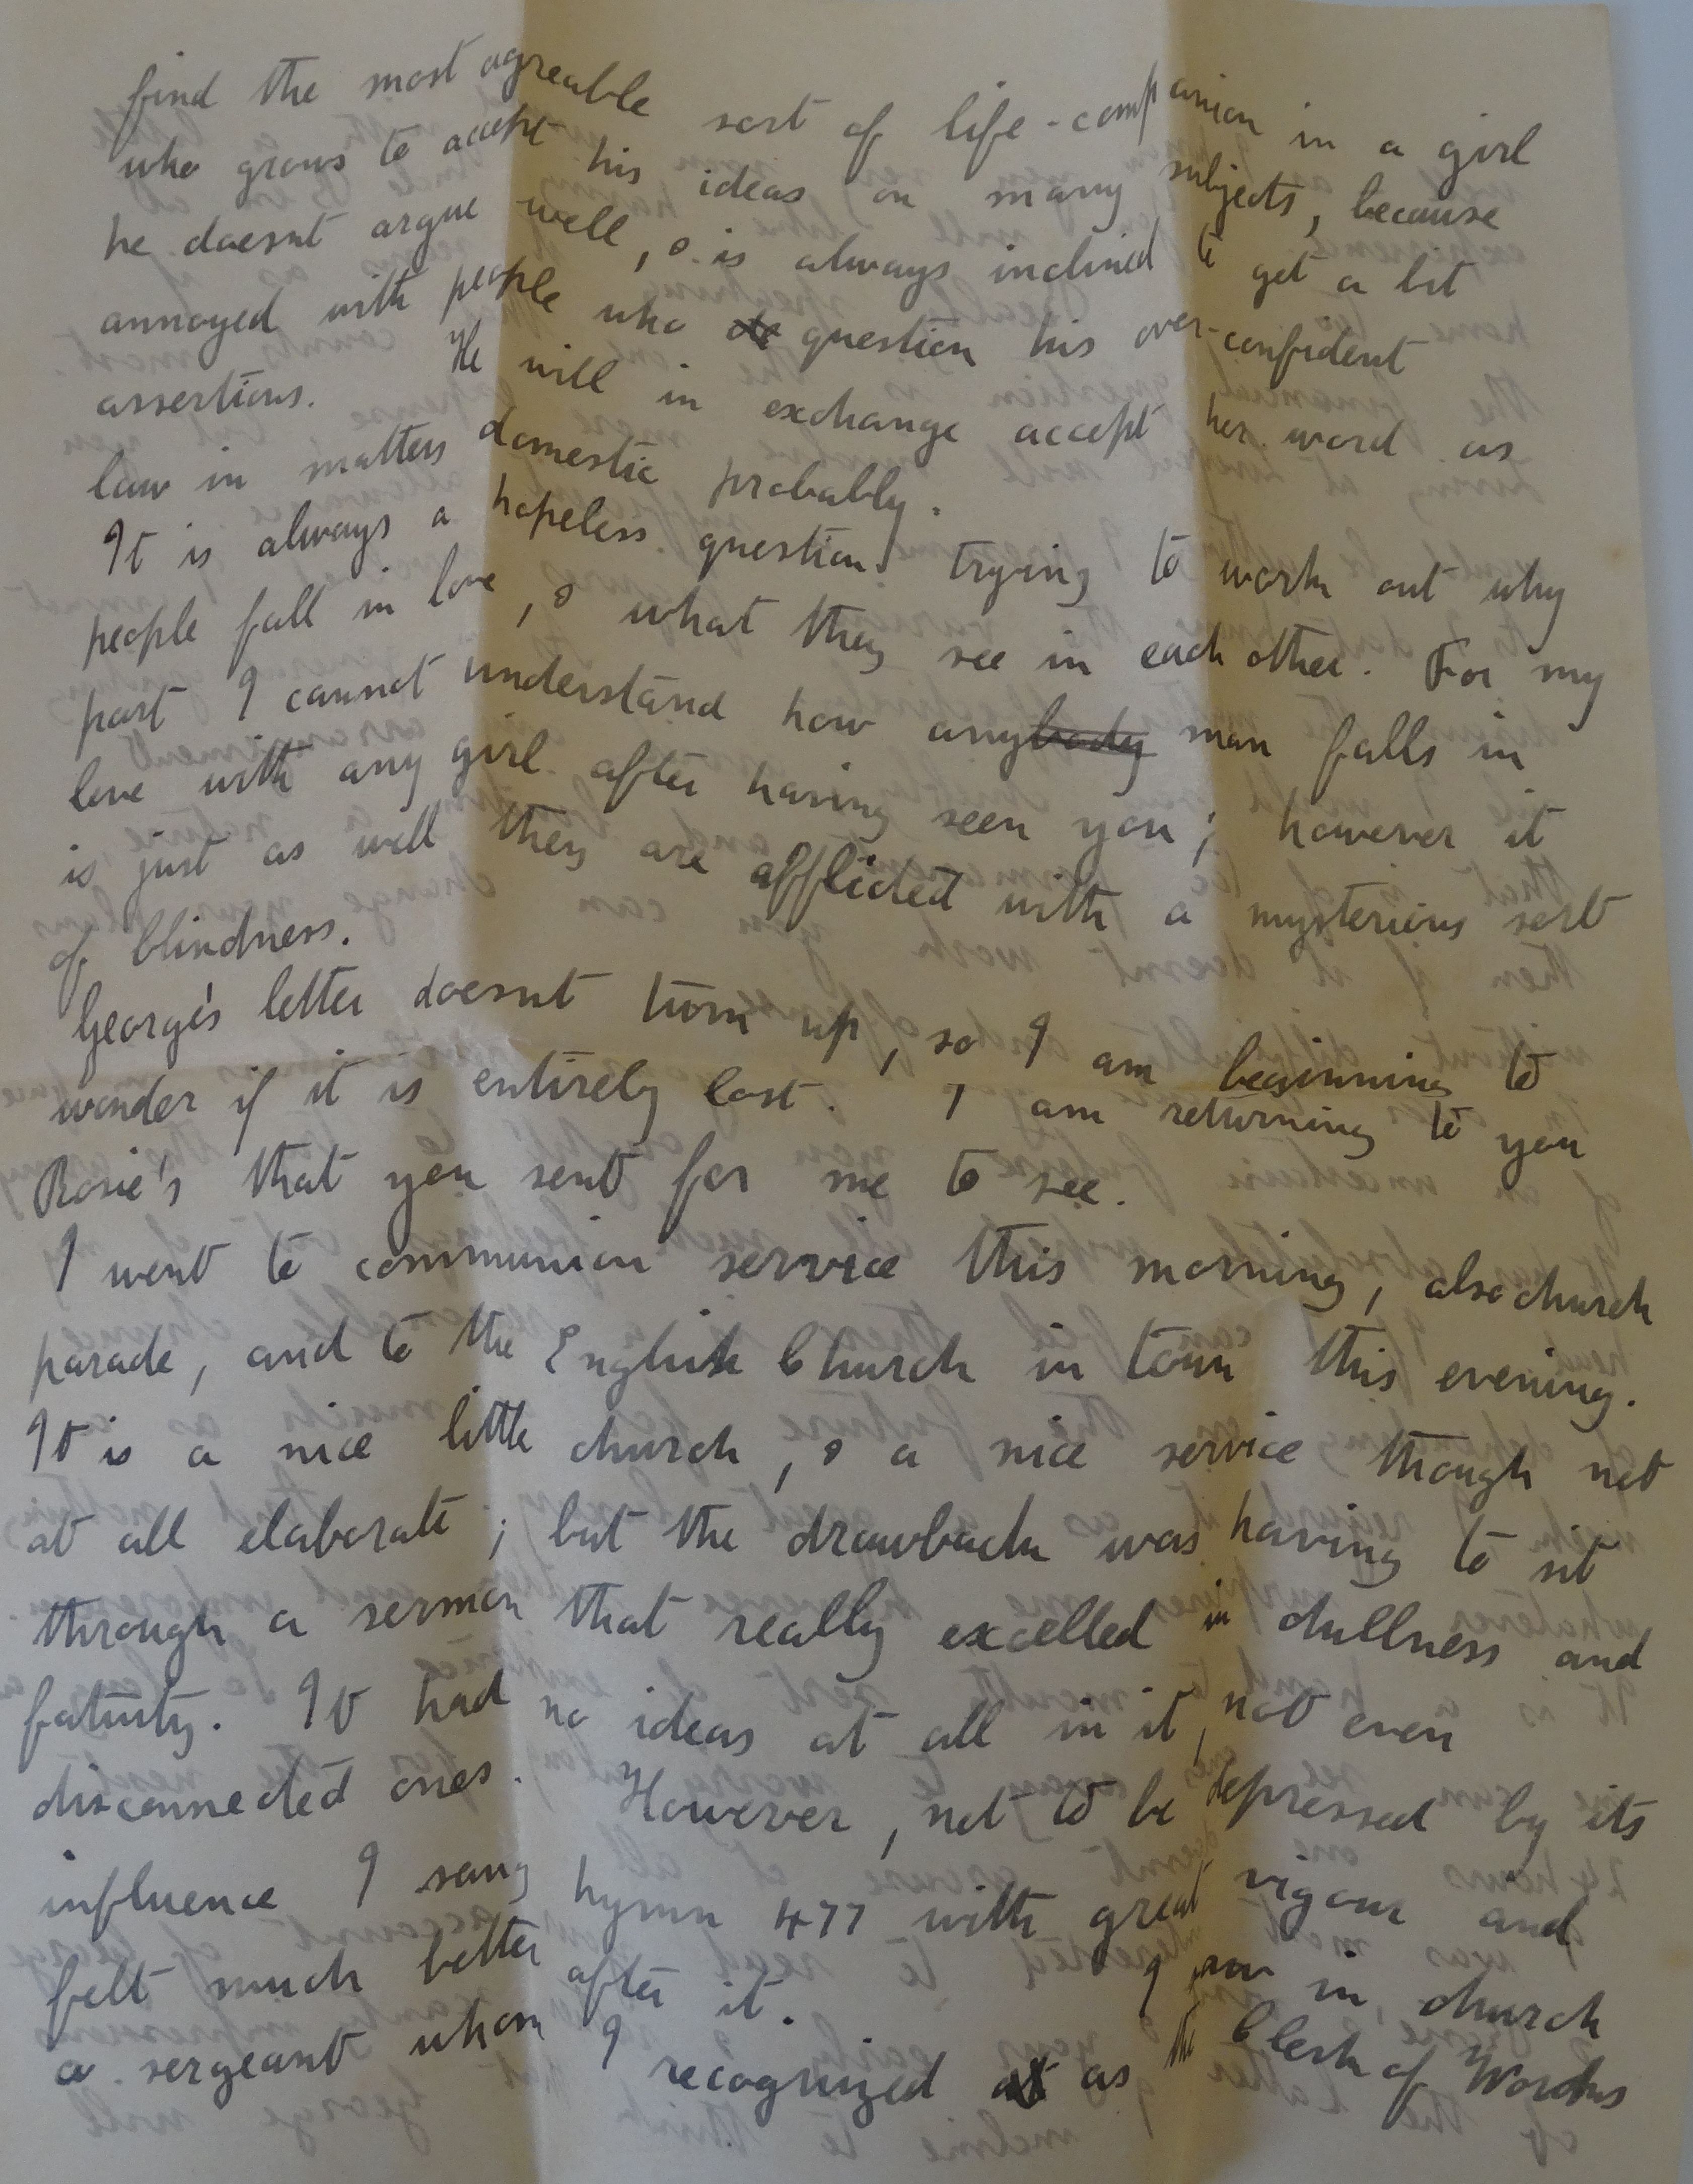 find the most agreable sort of life-companion in a girl
who grows to accept his ideas on many subjects, because
he doesnt argue well, & is always inclined to get a bit
annoyed with people who question his over-confident
assertions. He will in exchange accept her word as
law in matters domestic probably.
It is always a hopeless question trying to work out why
people fall in love, & what they see in each other. For my
part I cannot understand how anybody man falls in
love with any girl after having seen you; however it
is just as well they are afflicted with a mysterious sort
of blindness.
George's letter doesnt turn up, so I am beginning to
wonder if it is entirely lost. I am returning to you
Rosie's that you sent for me to see.
I went to communion service this morning, also church
parade, and to the English Church in town this evening.
It is a nice little church, & a nice service though not
at all elaborate; but the drawback was having to sit
through a sermon that really excelled in dullness and
fatuity. It had no ideas at all in it, not even
disconnected ones. However, not to be depressed by its
influence I sang hymn 477 with great vigour and
felt much better after it. I saw in church
a sergeant whom I recognized as the Clerk of Works